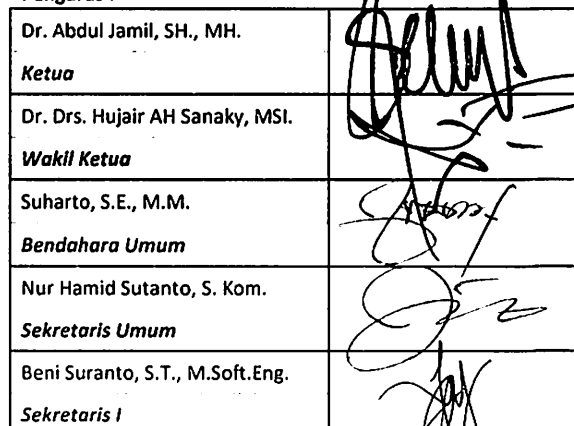 Dr. Abdul Jamil, SH., MH.
Ketua
Dr. Drs. Hujair AH Sanaky, MSI.
Wakil Ketua
Suharto, S.E., M.M.
Bendahara Umum
Nur Hamid Sutanto, S. Kom.
Sekretaris Umum
Beni Suranto, S.T., M.Soft.Eng.
Sekretaris I